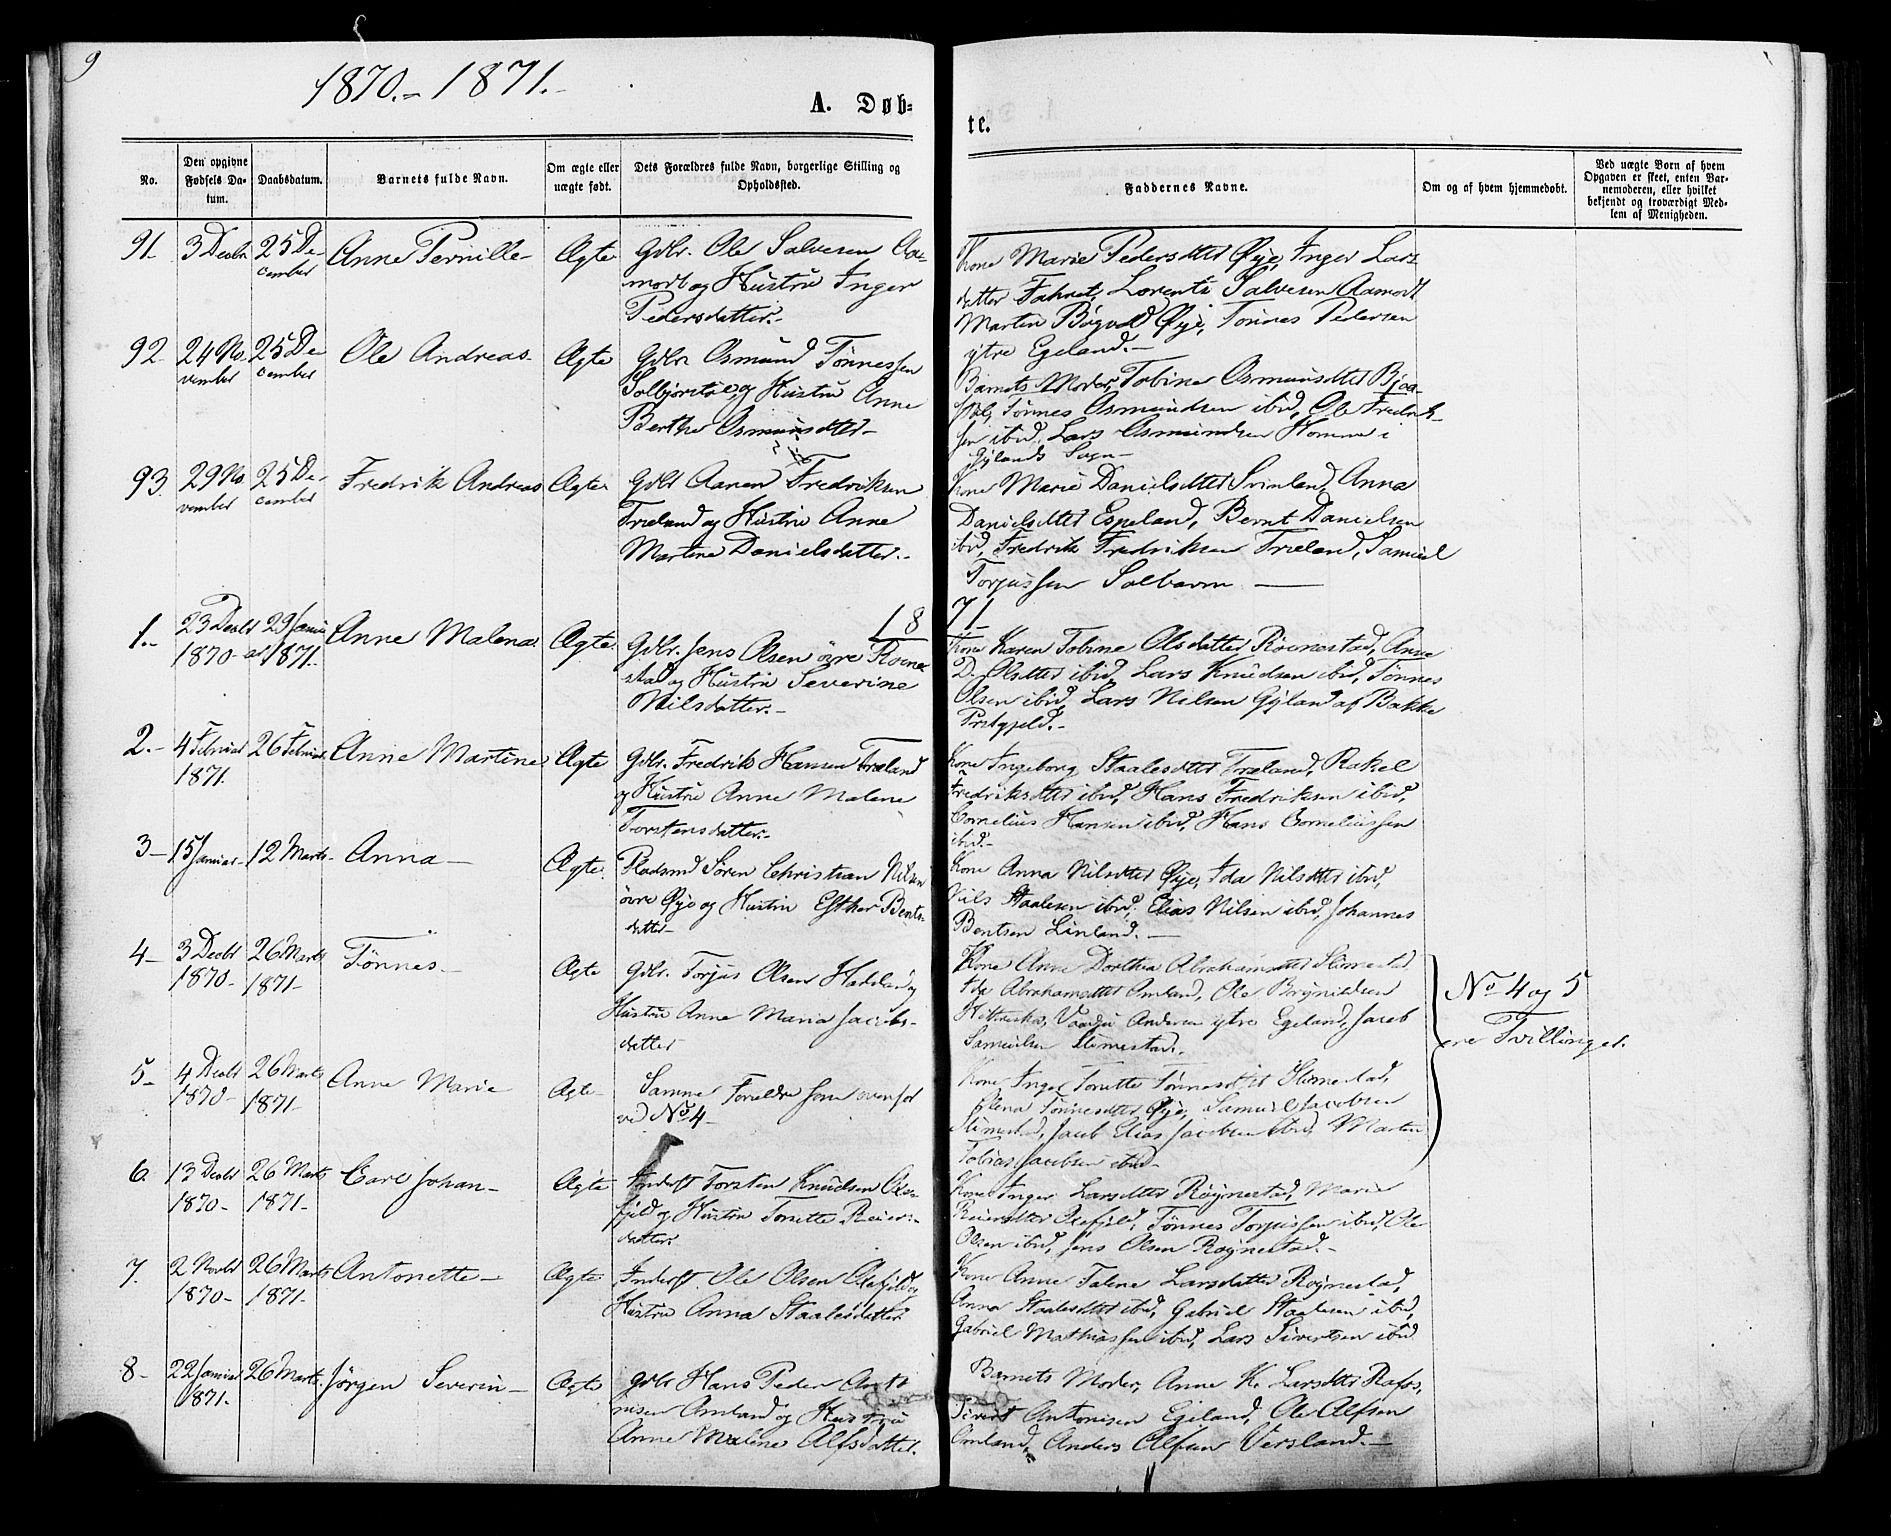 9
1870.-1871.
A. Døb-
te.
No.
Den opgivne Fødsels Da-tum.
Daabsdatum.
Barnets fulde Navn.
Om ægte eller uægte født.
Dets Forældres fulde Navn, borgerlige Stilling og Opholdssted.
Faddernes Navne.
Om og af hvem hjemmedøbt.
Ved uægte Børn af hvem Opgaven er skeet, enten Bar-nemoderen, eller hvilket bekjendt og troværdigt Med-lem af Menigheden.
91- 3 Decbr 25 De-cember Anne Pernille- Ægte
Gdbr. Ole Salvesen Aa-
modt og Hustru Inger
Pedersdatter.-
Kone Marie Pedersdtter Øye, Inger Lars
datter Lorents Salvesen Aamodt
Martin Øye, Tønnes Pedersen
ytre Egeland.-
92- 24 No-vember 25 De-cember Ole Andreas- Ægte
Gdbr Osmund Tønnessen
og Hustru Anne
Berthe Osmundsdtter-
Barnets Moder, Tobine Osmundsdtter
Tønnes Osmundsen ibid, Ole Fredrik-
sen ibid, Lars Osmundsen Homme i
Gylands Sogn-
93. 29 No-vember 25 De-cember Fredrik Andreas Ægte
Gdbr Aanen Fredriksen
Træland og Hustru Anne
Martine Danielsdatter.-
Kone Marie Danielsdtter Svinland, Anna
Danielsdtter Espeland, Bernt Danielsen
ibid, Fredrik Fredriksen Træland, Samuel
Torjussen
1871-
1.- 23 Decbr 1870- 29 Januar 1871- Anne Malena. Ægte.
Gdbr. Jens Olsen øvre Røine
stad og Hustru Severine
Nilsdatter.-
Kone Karen Tobine Olsdatter Røinestad, Anne
D. Olsdtter ibid, Lars Knudsen ibid, Tønnes
Olsen ibid, Lars Nilsen Gyland af Bakke
Prstgjeld.-
2.- 4 Februar 1871. 26 Februar Anne Martine Ægte
Gdbr. Fredrik Hansen Træland
og Hustru Anne Malene
Torstensdatter.-
Kone Ingeborg Staalesdtter Træland, Rakel
Fredriksdtter ibid, Hans Fredriksen ibid,
Cornelius Hansen ibid, Hans Corneliussen
ibid.-
3- 15 Januar- 12 Marts- Anna- Ægte.
Pladsmd Søren Christian Nilsen
øvre Øye og Hustru Esther Bents-
datter-
Kone Anna Nilsdtter Øye, Ida Nilsdtter ibid,
Nils Staalesen ibid, Elias Nilsen ibid, Johannes
Bentsen Linland.-
4- 3 Decbr 1870- 26 Marts 1871- Tønnes- Ægte
Gdbr. Torjus Olsen Hadeland og
Hustru Anne Maria Jacobs-
datter
Kone Anne Dorthea Abrahamsdtter Slimestad
Ida Abrahamsdtter Omland, Ole Brynildsen
Andersen ytre Egeland, Jacob
Samuelsen Slimestad.-
No 4 og 5
ere Tvillinger.
5- 4 Decbr 1870- 26 Marts 1871- Anne Marie Ægte-
Samme Forældre som ovenfor
ved No 4-
Kone Inger Tonette Tønnesdtter Slimestad,
Elena Tønnesdtter Øye, Samuel Jacobsen
Slimestad, Jacob Elias Jacobsen ibid, Martin
Tobias Jacobsen ibid-
6. 13 Decbr 1870- 26 Marts 1871- Carl Johan- Ægte
Inderst Torsten Knudsen Oxe-
fjeld og Hustru Tonette Reiers-
datter.
Kone Inger Larsdtter Røynestad, Marie
Reiersdtter Oxefjeld, Tønnes Torjussen ibid, Ole
Olsen ibid, Jens Olsen Røynestad.-
7. 2 Novbr 1870- 26 Marts 1871- Antonette- Ægte
Inderst Ole Olsen Oxefjeld og
Hustru Anna Staalesdatter
Kone Anne Talene Larsdatter Røynestad,
Anna Staalesdtter ibid, Gabriel Staalesen ibid,
Gabriel Mathiassen ibid, Lars Sivertsen ibid
8- 22 Januar 1871. 26 Marts. Jørgen Severin- Ægte
Gdbr Hans Peder Anto
nisen Omland og Hustru
Anne Malene Alfsdatter.
Barnets Moder, Anne K. Larsdtter Rafos,
Sivert Antonisen Egeland, Ole Alfsen
Omland, Anders Alfsen Versland.-